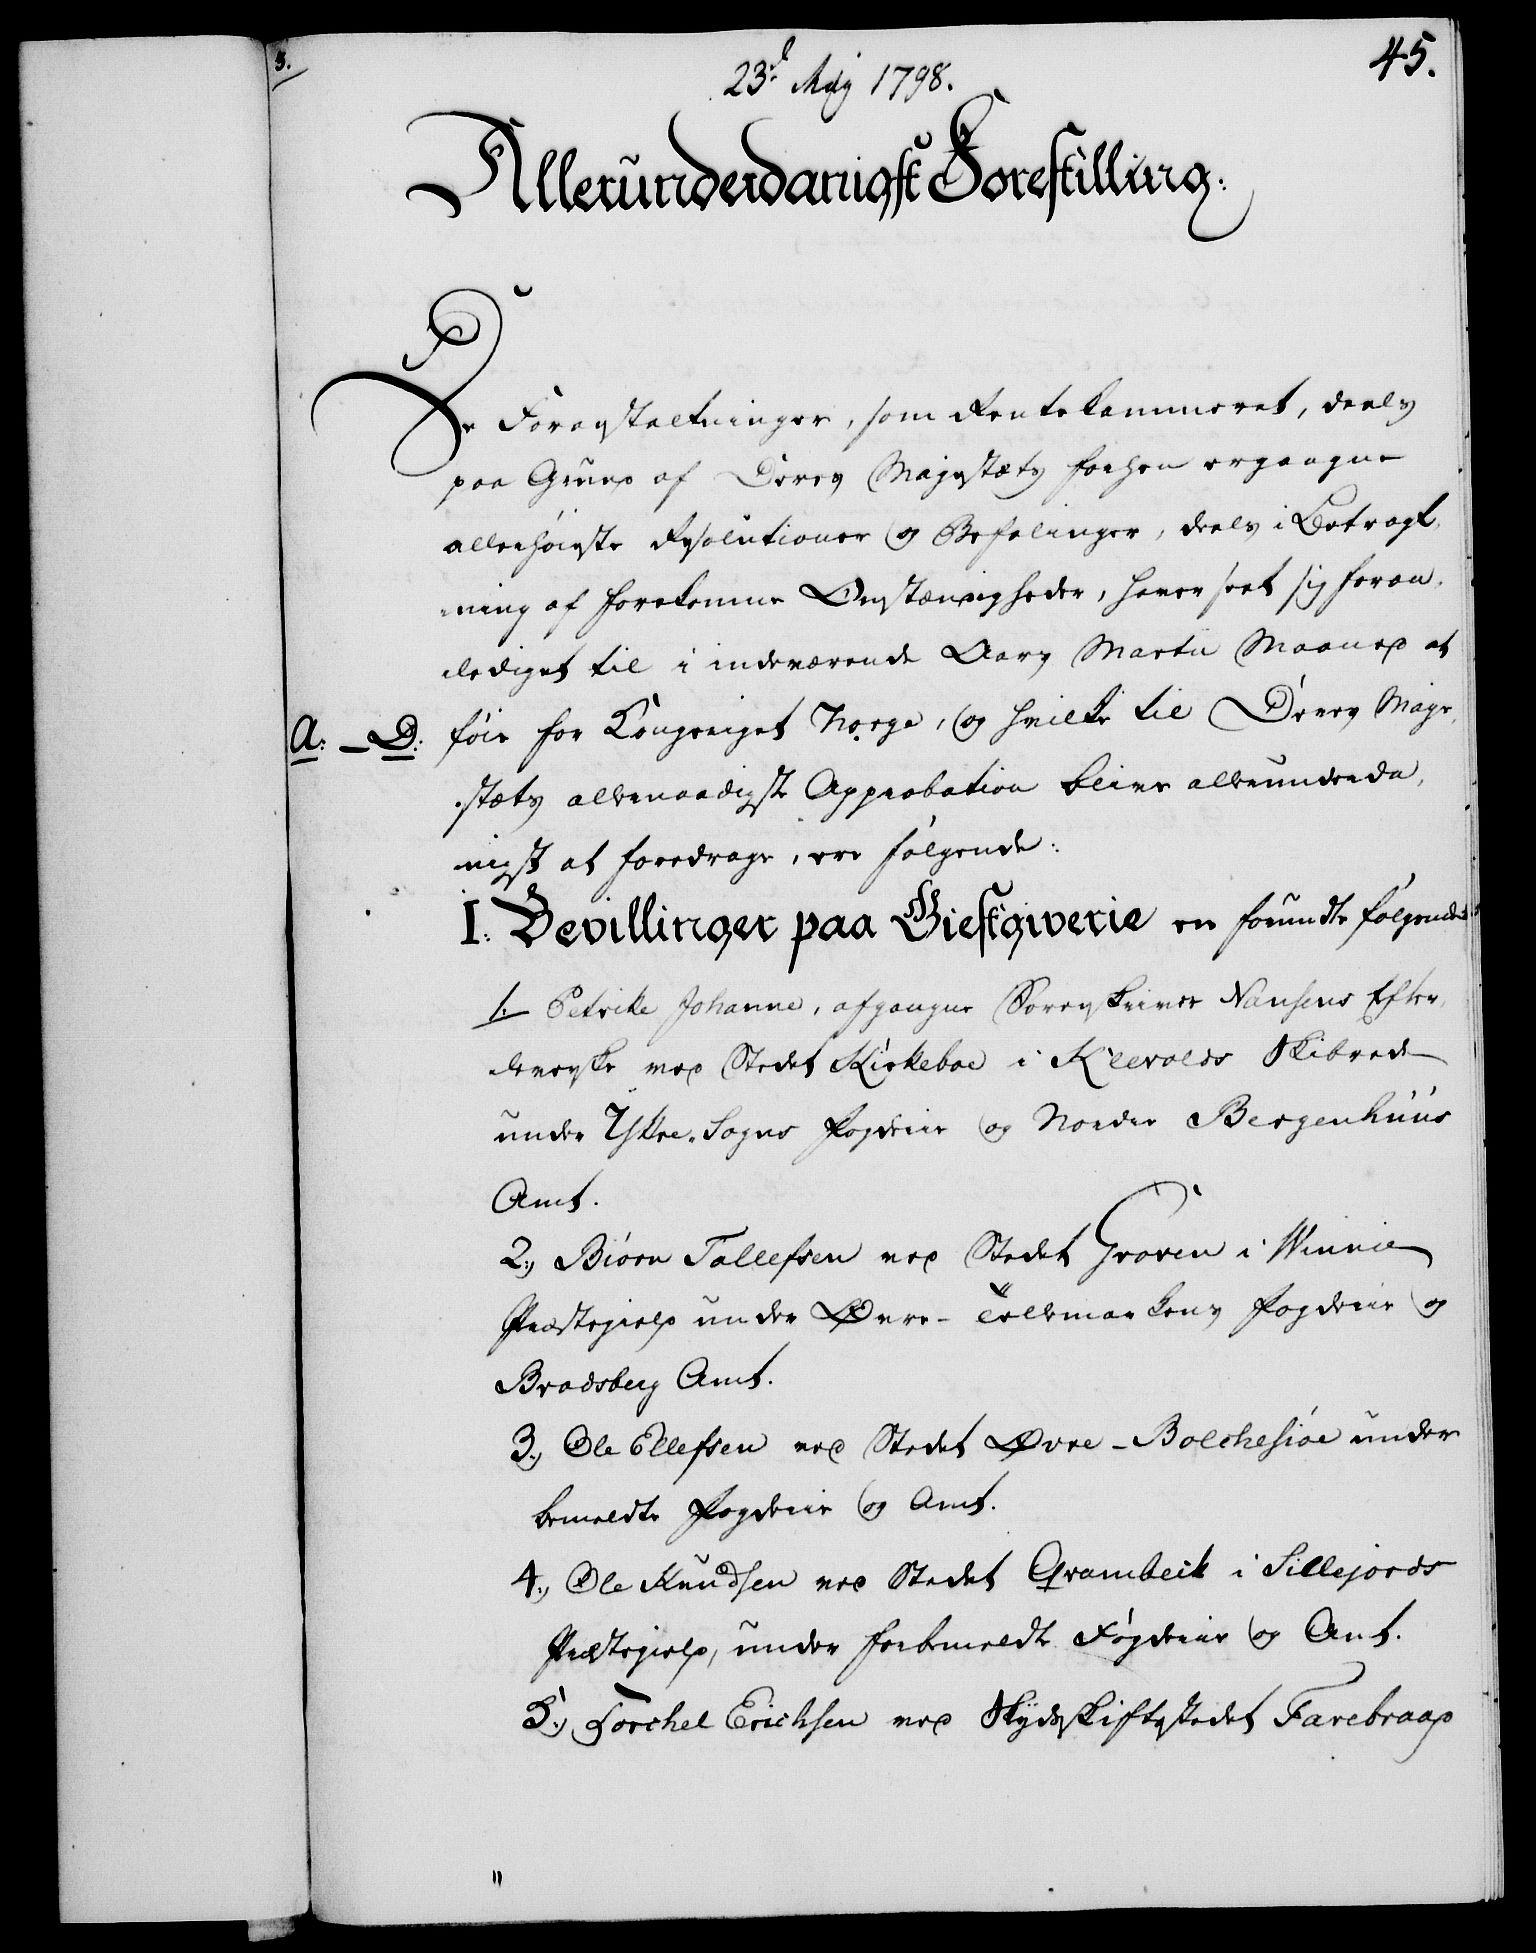 45.
23.d Maj 1798.
Allerunderdanigst Forestilling.
De Foranstaltninger, som Rentekammeret, deels
paa Grund af Deres Majestæts forhen ergangne
allerhöieste Resolutioner og Befalinger, deels i Betragt,
ning af forekomne Omstændigheder, haver seet sig foran,
lediget til i indeværende Aars Martii Maaned at
A. - D. föie for Kongeriget Norge, og hvilke til Deres Maje,
stæts allernaadigste Approbation blive allerunderda,
nigst at foredrage, ere fölgende:
I. Bevillinger paa Giestgiverie ere forundte fölgende
1. Petrike Johanne, afgangne Sorenskriver Nansens Efter,
leverske ved Stedet Kirkeboe i Klevolds Skibrede
under Yttre-Sogns Fogderie og Nordre Bergenhuus
Amt.
2.) Biörn Tollefsen ved Stedet Graven i Winnie
Præstegield under Øvre-Tellemarkens Fogderie og
Bradsberg Amt.
3.) Ole Ellefsen ved Stedet Øvre-Bolchesiøe under
bemeldte Fogderie og Amt.
4.) Ole Knudsen ved Stedet Qvambeck i Sillejords
Præstegield, under forbemeldte Fogderie og Amt.
5.) Torchel Erichsen ved Skydsskiftestedet Farebraad